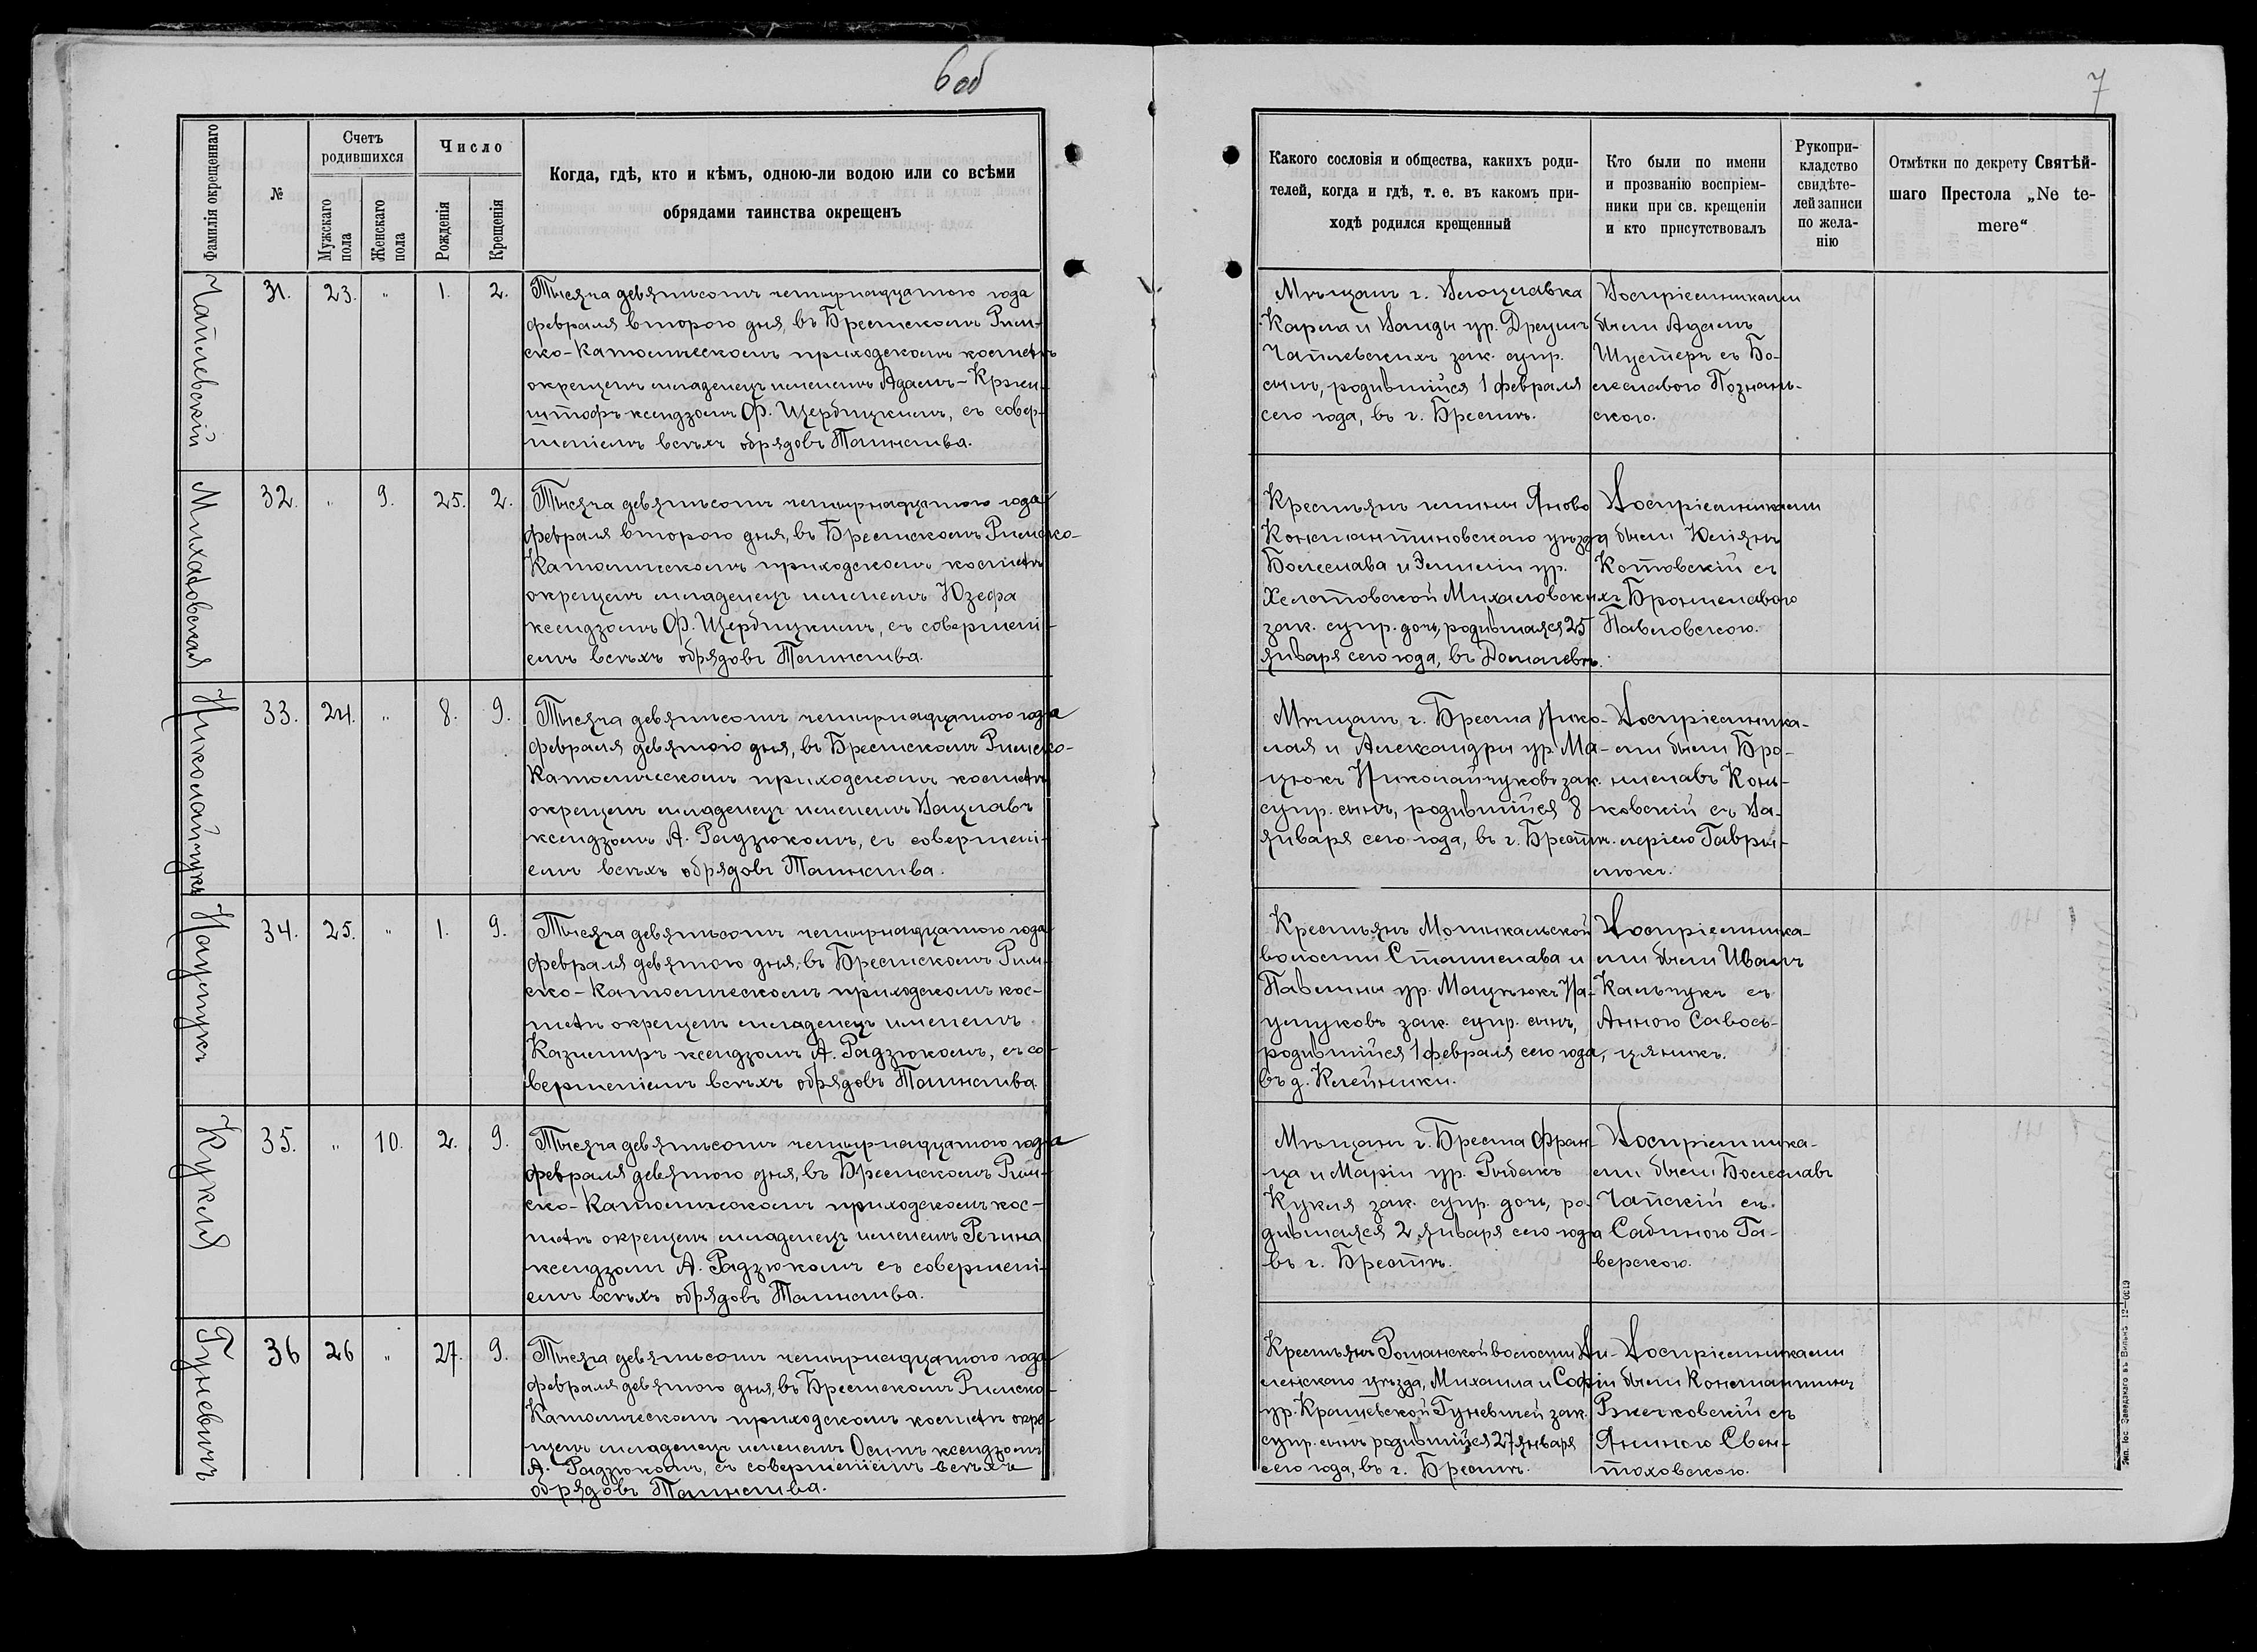 6 об
Фамилія окрещеннаго
№
Счетъ родившихся
Мужскаго пола
Женскаго пола
Число
Рожденія
Крещенія
Когда, гдѣ, кто и кѣмъ, одною-ли водою или со всѣми
обрядами таинства окрещенъ
Чаплевскій
31.
23.
"
1.
2.
Тысяча девятьсотъ четырнадцатого года
февраля второго дня, въ Брестскомъ Рим-
ско-Католическомъ приходскомъ костелѣ
окрещенъ младенецъ именемъ Адамъ-Крыш-
штофъ ксендзомъ Ф. Щербицкимъ, съ совер-
шеніемъ всѣхъ обрядовъ Таинства.
Михаловская
32.
"
9.
25.
2.
Тысяча девятьсотъ четырнадцатого года
февраля второго дня, въ Брестскомъ Римско-
Католическомъ приходскомъ костелѣ
окрещенъ младенецъ именемъ Юзефа
ксендзомъ Ф. Щербицкимъ, съ совершені-
емъ всѣхъ обрядовъ Таинства.
Николайчукъ
33.
24.
"
8.
9.
Тысяча девятьсотъ четырнадцатого года
февраля девятого дня, въ Брестскомъ Римско-
Католическомъ приходскомъ костелѣ
окрещенъ младенецъ именемъ Вацлавъ
ксендзомъ А. Радзюкомъ, съ совершені-
емъ всѣхъ обрядовъ Таинства.
Наумчукъ
34.
25.
"
1.
9.
Тысяча девятьсотъ четырнадцатого года
февраля девятого дня, въ Брестскомъ Рим-
ско-Католическомъ приходскомъ кос-
телѣ окрещенъ младенецъ именемъ
Казимиръ ксендзомъ А. Радзюкомъ, съ со-
вершеніемъ всѣхъ обрядовъ Таинства.
Кукля
35.
"
10.
2.
9.
Тысяча девятьсотъ четырнадцатого года
февраля девятого дня, въ Брестскомъ Рим-
ско-Католическомъ приходскомъ кос-
телѣ окрещенъ младенецъ именемъ Регина
ксендзомъ А. Радзюкомъ съ совершені-
емъ всѣхъ обрядовъ Таинства.
Гуневичъ
36
26
"
27.
9.
Тысяча девятьсотъ четырнадцатого года
февраля девятого дня, въ Брестскомъ Римско-
Католическомъ приходскомъ костелѣ окре-
щенъ младенецъ именемъ Осипъ ксендзомъ
А. Радзюкомъ, съ совершеніемъ всѣхъ
обрядовъ Таинства.
7
Какого сословія и общества, какихъ роди-
телей, когда и гдѣ, т. е. въ какомъ при-
ходѣ родился крещенный
Кто были по имени
и прозванію воспріем-
ники при св. крещеніи
и кто присутствовалъ
Рукопри-
кладство
свидѣте-
лей записи
по жела-
нію
Отмѣтки по декрету Святѣй-
шаго Престола „Ne te-
mere“
Мѣщанъ г. Влоцлавка
Карла и Ванды ур. Дреуичъ
Чаплевскихъ зак. супр.
сынъ, родившійся 1 февраля
сего года, въ г. Брестѣ.
Воспріемниками
были Адамъ
Шустеръ съ Бо-
леславою Познань-
скою.
Крестьянъ гмины Яново
Константиновскаго уѣзда
Болеслава и Эмиліи ур.
Хелстовской Михаловскихъ
зак. супр. дочь, родившаяся 25
января сего года, въ Домачевѣ.
Воспріемниками
были Юліянъ
Котовскій съ
Брониславою
Павловскою.
Мѣщанъ г. Бреста Нико-
лая и Александры ур. Ма-
цюкъ Николайчуковъ зак.
супр. сынъ, родившійся 8
января сего года, въ г. Брестѣ.
Воспріемника-
ми были Бро-
ниславъКонь-
ковскій съ Ва-
леріею Гаври-
люкъ.
Крестьянъ Мотыкальской
волости Станислава и
Павлины ур. Мацѣюкъ На-
умчуковъ зак. супр. сынъ,
родившійся 1 февраля сего года,
въ д. Клейники.
Воспріемника-
ми были Иванъ
Кальчукъ съ
Анною Савось-
цяникъ.
Мѣщанъ г. Бреста Фран-
ца и Маріи ур. Рыбакъ
Кукля зак. супр. дочь, ро-
дившаяся 2 января сего года
въ г. Брестѣ.
Воспріемника-
ми были Болеславъ
Чапскій съ
Сабиною Га-
верскою.
Крестьянъ Рошанской волости Ви-
ленскаго уѣзда, Михаила и Софіи
ур. Крашевской Гуневичей зак.
супр. сынъ родившійся 27 января
сего года, въ г. Брестѣ.
Воспріемниками
были Константинъ
Ржечковскій съ
Яниною Свен-
тоховскою.
Тип. Іос. Завадзкаго въ Вильнѣ